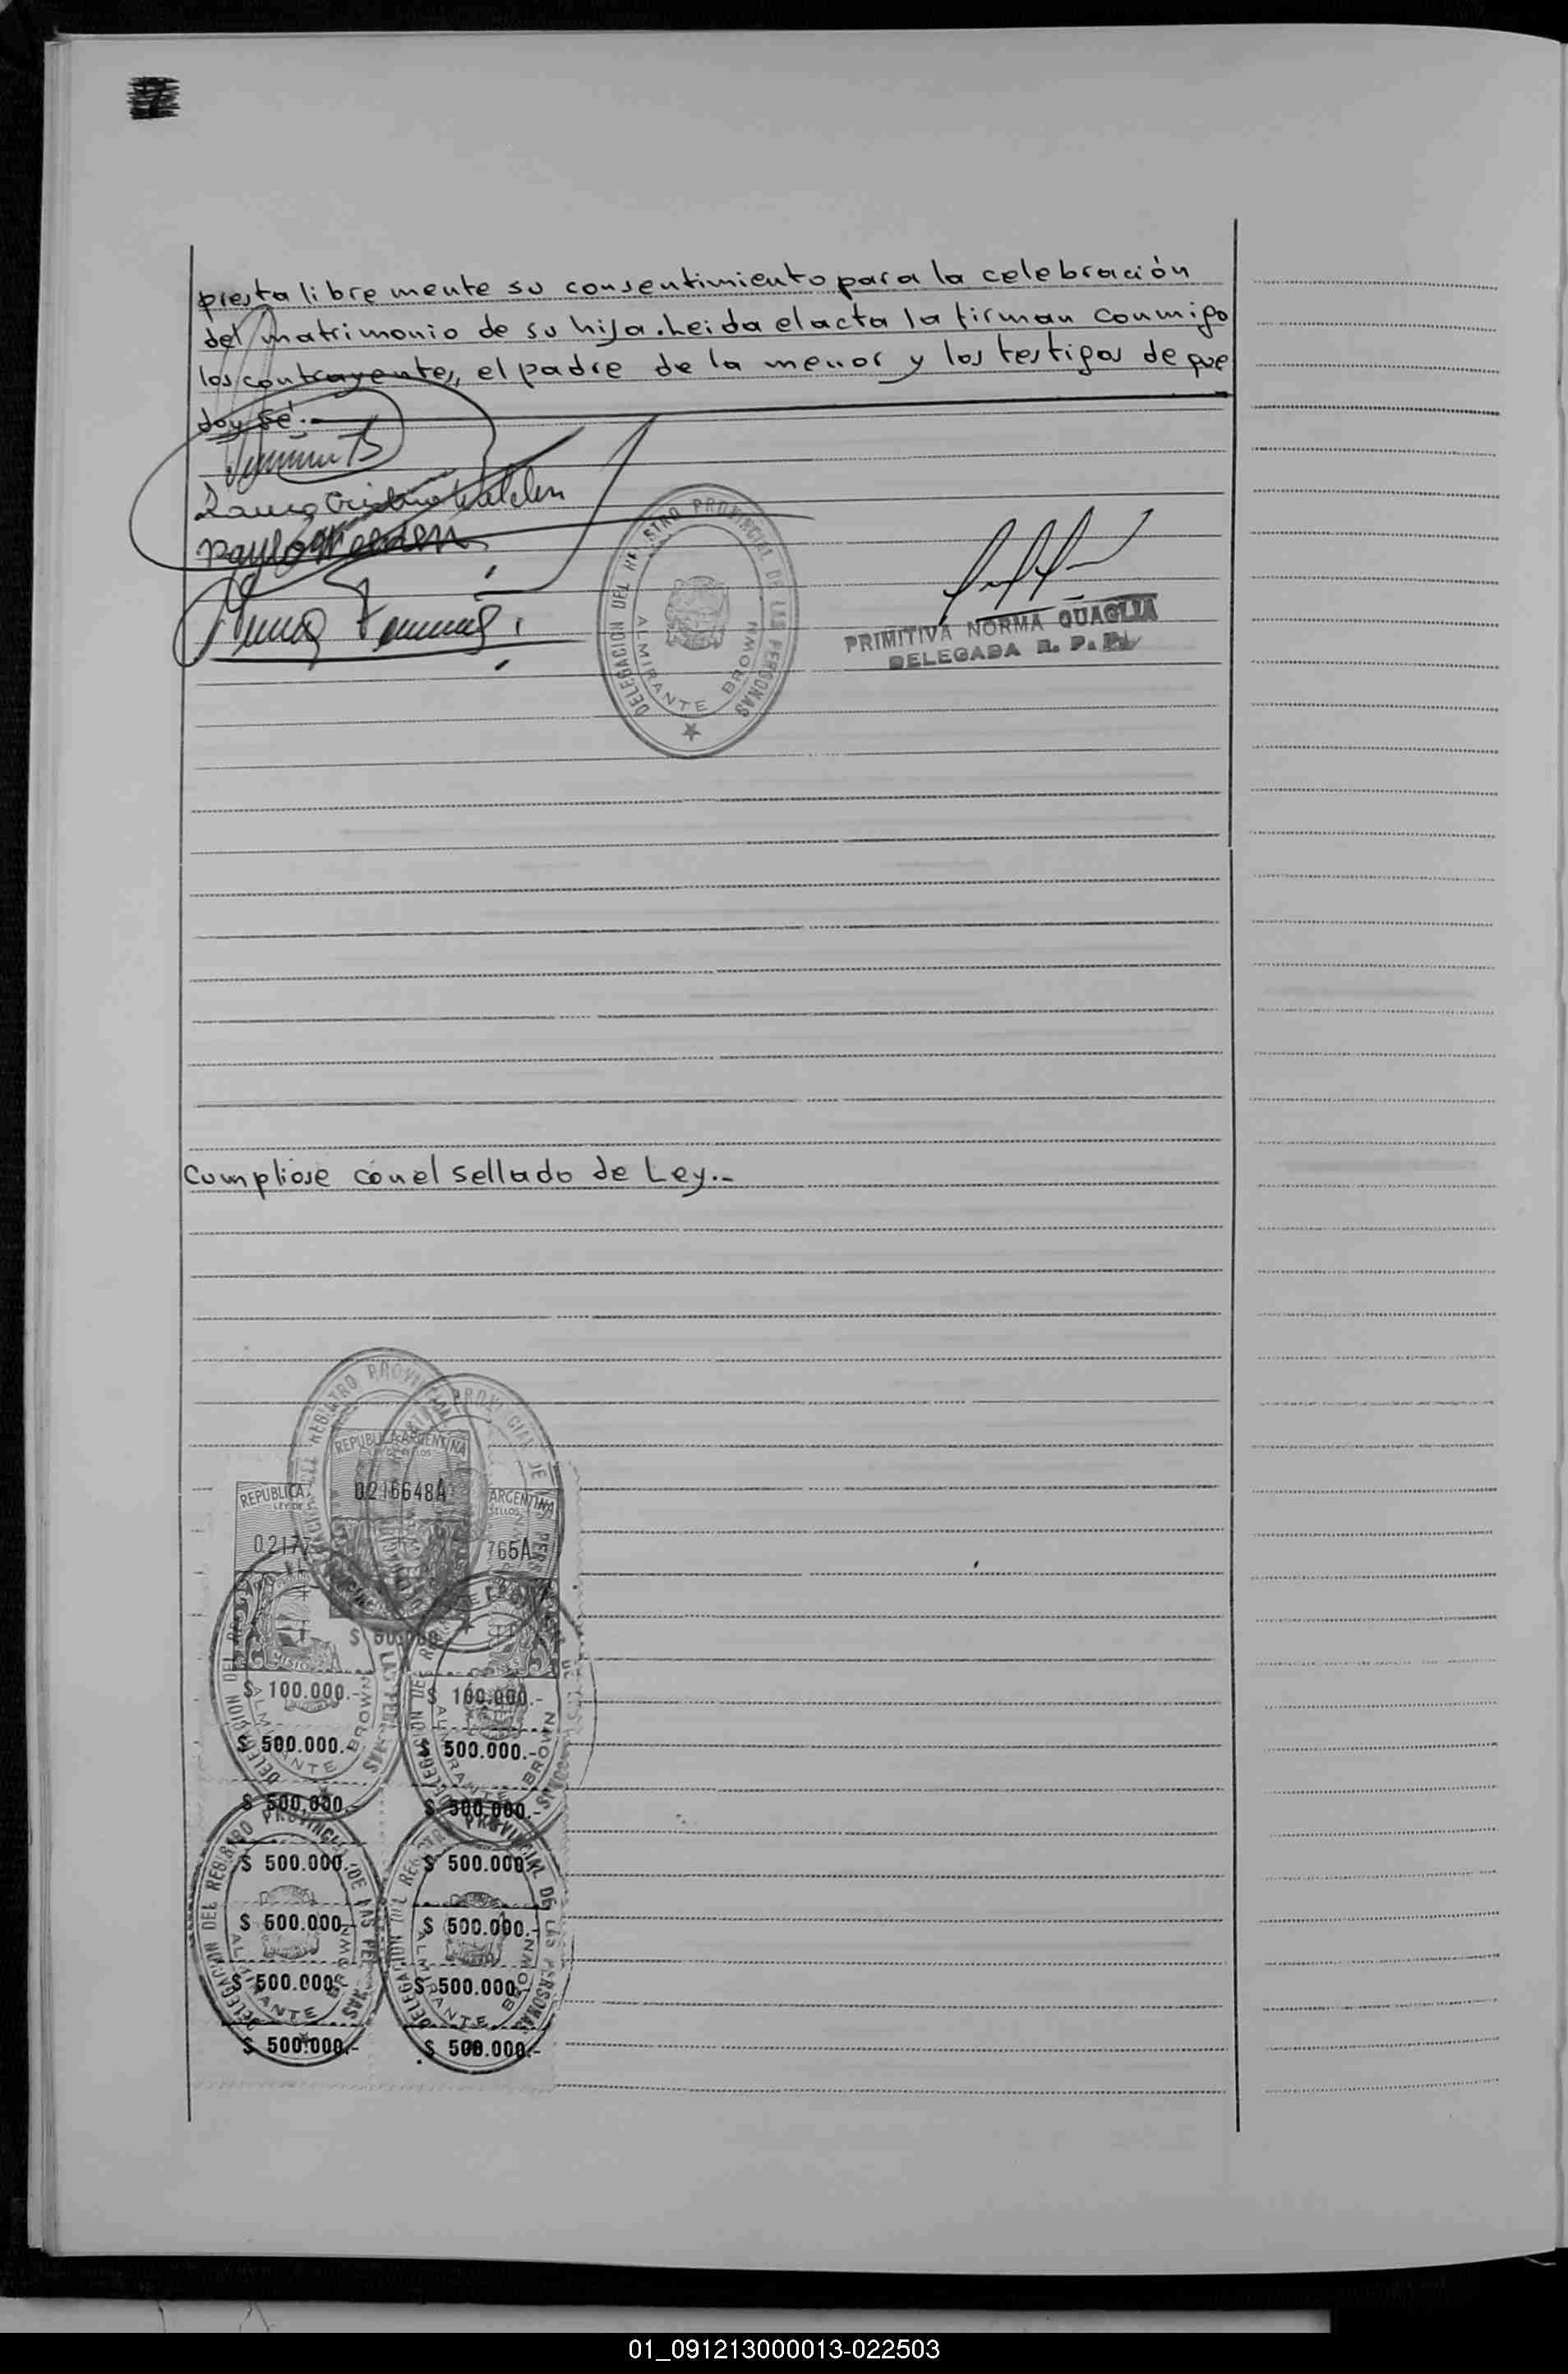 presta libremente su consentimiento para la celebración
del matrimonio de su hija. Leida el acta la firman conmigo
los contrayentes, el padre de la menor y los testigos de que
doy fé.
Laura Cristina
DELEGACION DEL REGISTRO PROVINCIAL DE LAS PERSONAS
ALMIRANTE BROWN
PRIMITIVA NORMA QUAGLIA
DELEGADA R. P. P.
Cumpliose con el sellado de Ley.-
REGISTRO PROVINCIAL
PROVINCIAL DE
REPUBLICA ARGENTINA
LEY DE SELLOS
0216648A
REPUBLICA
LEY DE S
0217
ARGENTINA
SELLOS
765A
$ 100.000.-
$ 100.000.-
$ 500.000.-
$ 500.000.-
$ 500.000.-
$ 500.000.-
$ 500.000.-
$ 500.000.-
$ 500.000.-
$ 500.000.-
$ 500.000.-
$ 500.000.-
$ 500.000.-
$ 500.000.-
DELEGACION DEL REGISTRO PROVINCIAL DE LAS PERSONAS
ALMIRANTE BROWN
DELEGACION DEL REGISTRO PROVINCIAL DE LAS PERSONAS
ALMIRANTE BROWN
01_091213000013-022503